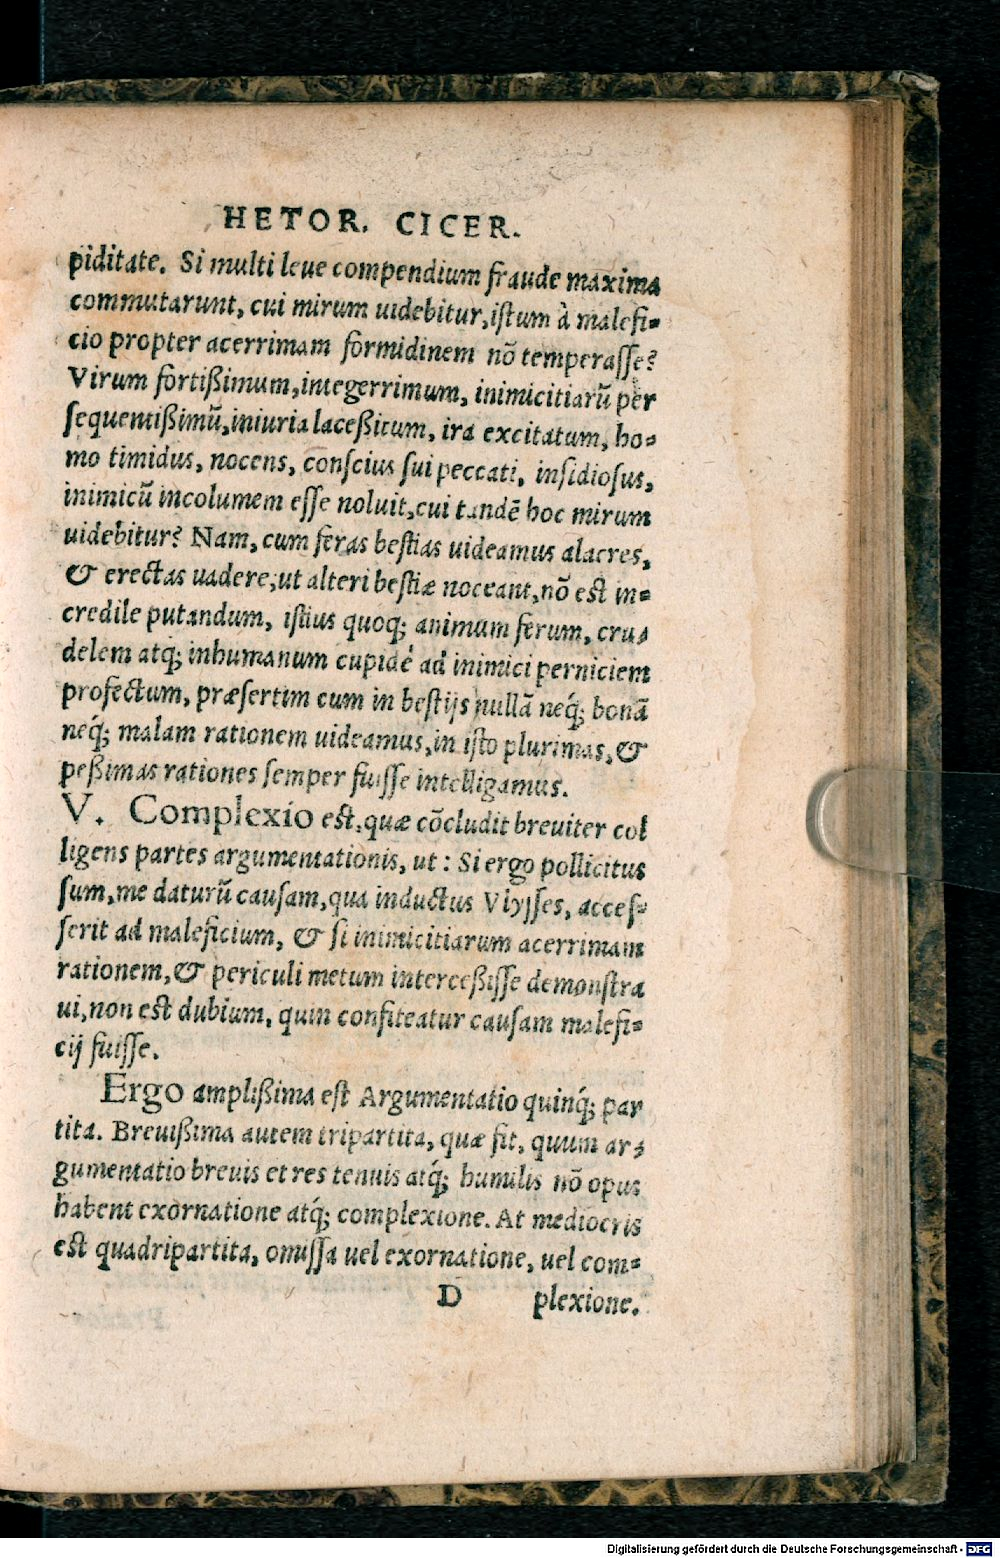 HETOR. CICER.
piditate. Si multi leue compendium fraude maxima
commutarunt, cui mirum uidebitur, istum à malefi=
cio propter acerrimam formidinem nõ temperasse?
Virum fortißimum, integerrimum, inimicitiarũ per
sequentißimũ, iniuria laceßitum, ira excitatum, ho=
mo timidus, nocens, conscius sui peccati, insidiosus,
inimicũ incolumem esse noluit, cui tandẽ hoc mirum
uidebitur? Nam, cum feras bestias uideamus alacres,
& erectas uadere, ut alteri bestiæ noceant, nõ est in=
credile putandum, istius quoq; animum ferum, cru=
delem atq; inhumanum cupidè ad inimici perniciem
profectum, præsertim cum in bestijs nullã neq́; bonã
neq́; malam rationem uideamus, in isto plurimas, &
peßimas rationes semper fuisse intelligamus.
V. Complexio est, quæ cõcludit breuiter col
ligens partes argumentationis, ut: Si ergo pollicitus
sum, me daturũ causam, qua inductus Vlysses, acces=
serit ad maleficium, & si inimicitiarum acerrimam
rationem, & periculi metum interceßisse demonstra
ui, non est dubium, quin confiteatur causam malefi=
cij fuisse.
Ergo amplißima est Argumentatio quinq́; par
tita. Breuißima autem tripartita, quæ fit, quum ar=
gumentatio breuis et res tenuis atq́; humilis nõ opus
habent exornatione atq́; complexione. At mediocris
est quadripartita, omissa uel exornatione, uel com=
D plexione.
Digitalisierung gefördert durch die Deutsche Forschungsgemeinschaft - DFG